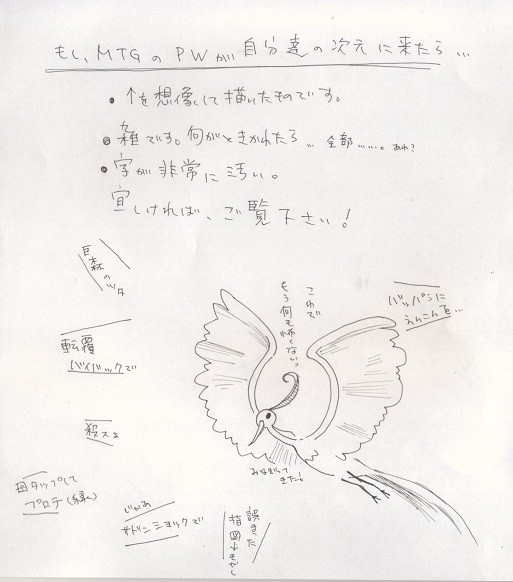 もし、MTGのPWが自分達の次元に来たら…
・↑を想像して描いたものです。
・雑です。何がときかれたら… 全部……。あれ?
・字が非常に汚い。
宜しければ、ご覧下さい!
巨森の
ツタ
これで
もう何も怖くない。
バッパラに
えんこんを…
転覆
バイバックで
殺スよ
みなぎって
きた!
田タップして
プロテ(緑)
じゃあ
サドンショックで
誤った
指図↓もやし